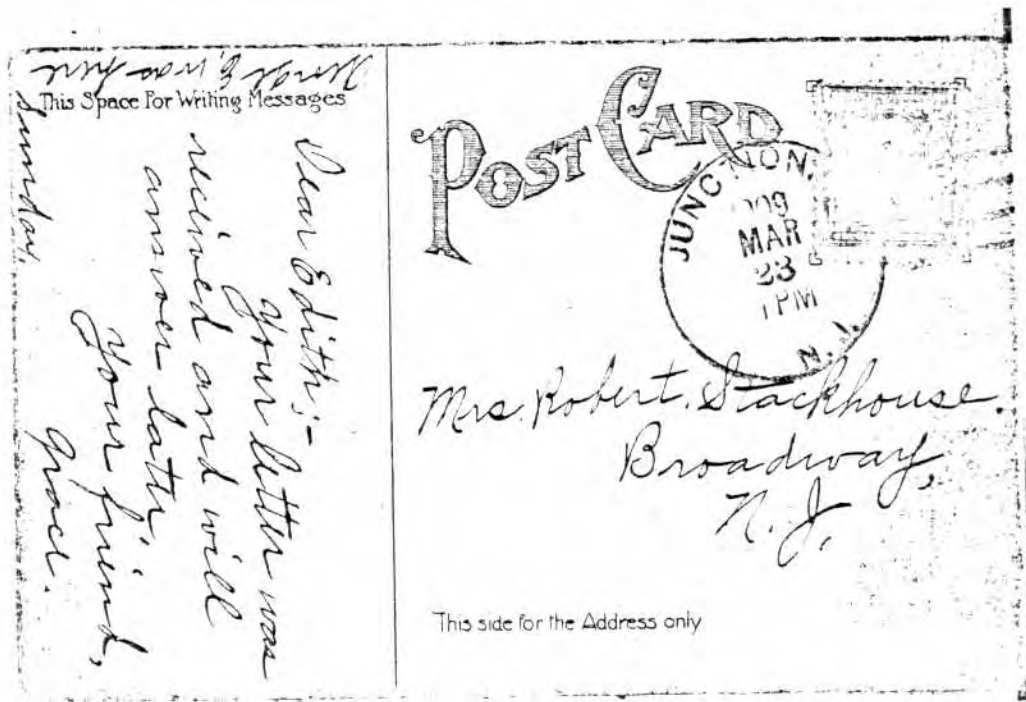 This Space For Writing Messages
Dear Edith;-
your letter was
received and will
answer later.
Your friend,
Grace.
was here
Sunday.
POST CARD
JUNCTION.
N.J.
1909
MAR
23
1 PM
Mrs. Robert. Stackhouse.
Broadway,
N. J.
This side for the Address only